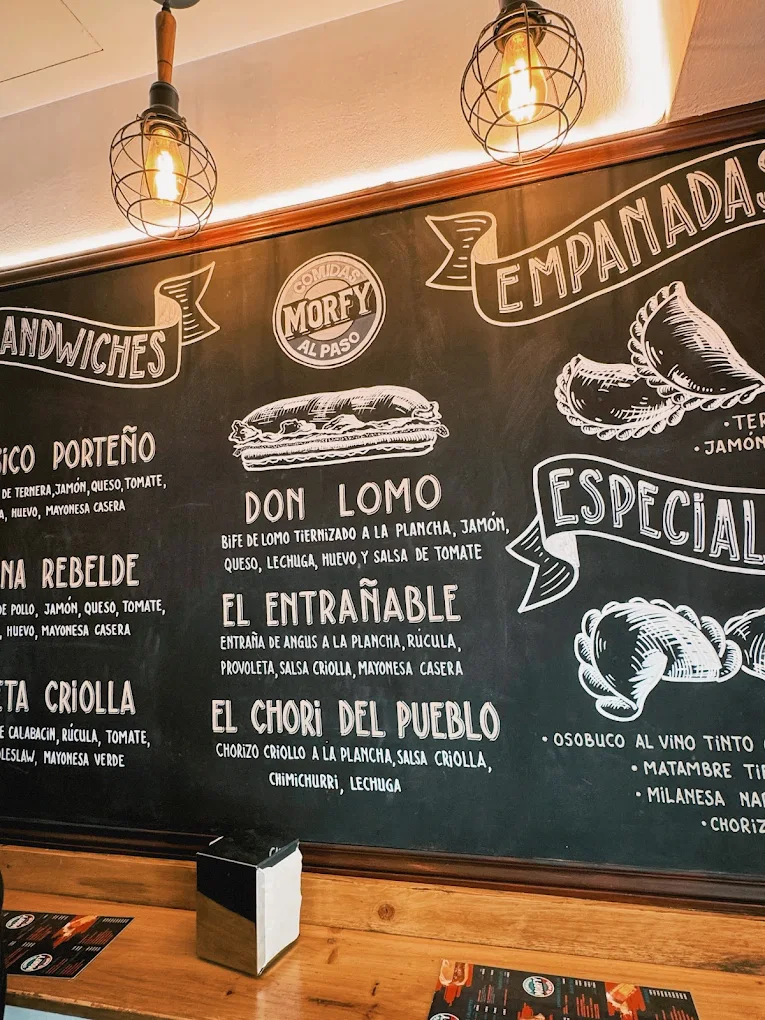 ANDWICHES
SICO PORTEÑO
DE TERNERA, JAMÓN, QUESO, TOMATE,
HUEVO, MAYONESA CASERA
NA REBELDE
DE POLLO, JAMÓN, QUESO, TOMATE,
HUEVO, MAYONESA CASERA
ETA CRIOLLA
E CALABACIN, RÚCULA, TOMATE,
OLESLAW, MAYONESA VERDE
COMIDAS
MORFY
AL PASO
DON LOMO
BIFE DE LOMO TIERNIZADO A LA PLANCHA, JAMÓN,
QUESO, LECHUGA, HUEVO Y SALSA DE TOMATE
EL ENTRAÑABLE
ENTRAÑA DE ANGUS A LA PLANCHA, RÚCULA,
PROVOLETA, SALSA CRIOLLA, MAYONESA CASERA
EL CHORI DEL PUEBLO
CHORIZO CRIOLLO A LA PLANCHA, SALSA CRIOLLA,
CHIMICHURRI, LECHUGA
EMPANADAS
• TER
• JAMÓN
ESPECIAL
• OSOBUCO AL VINO TINTO
• MATAMBRE TI
• MILANESA NA
• CHORIZ